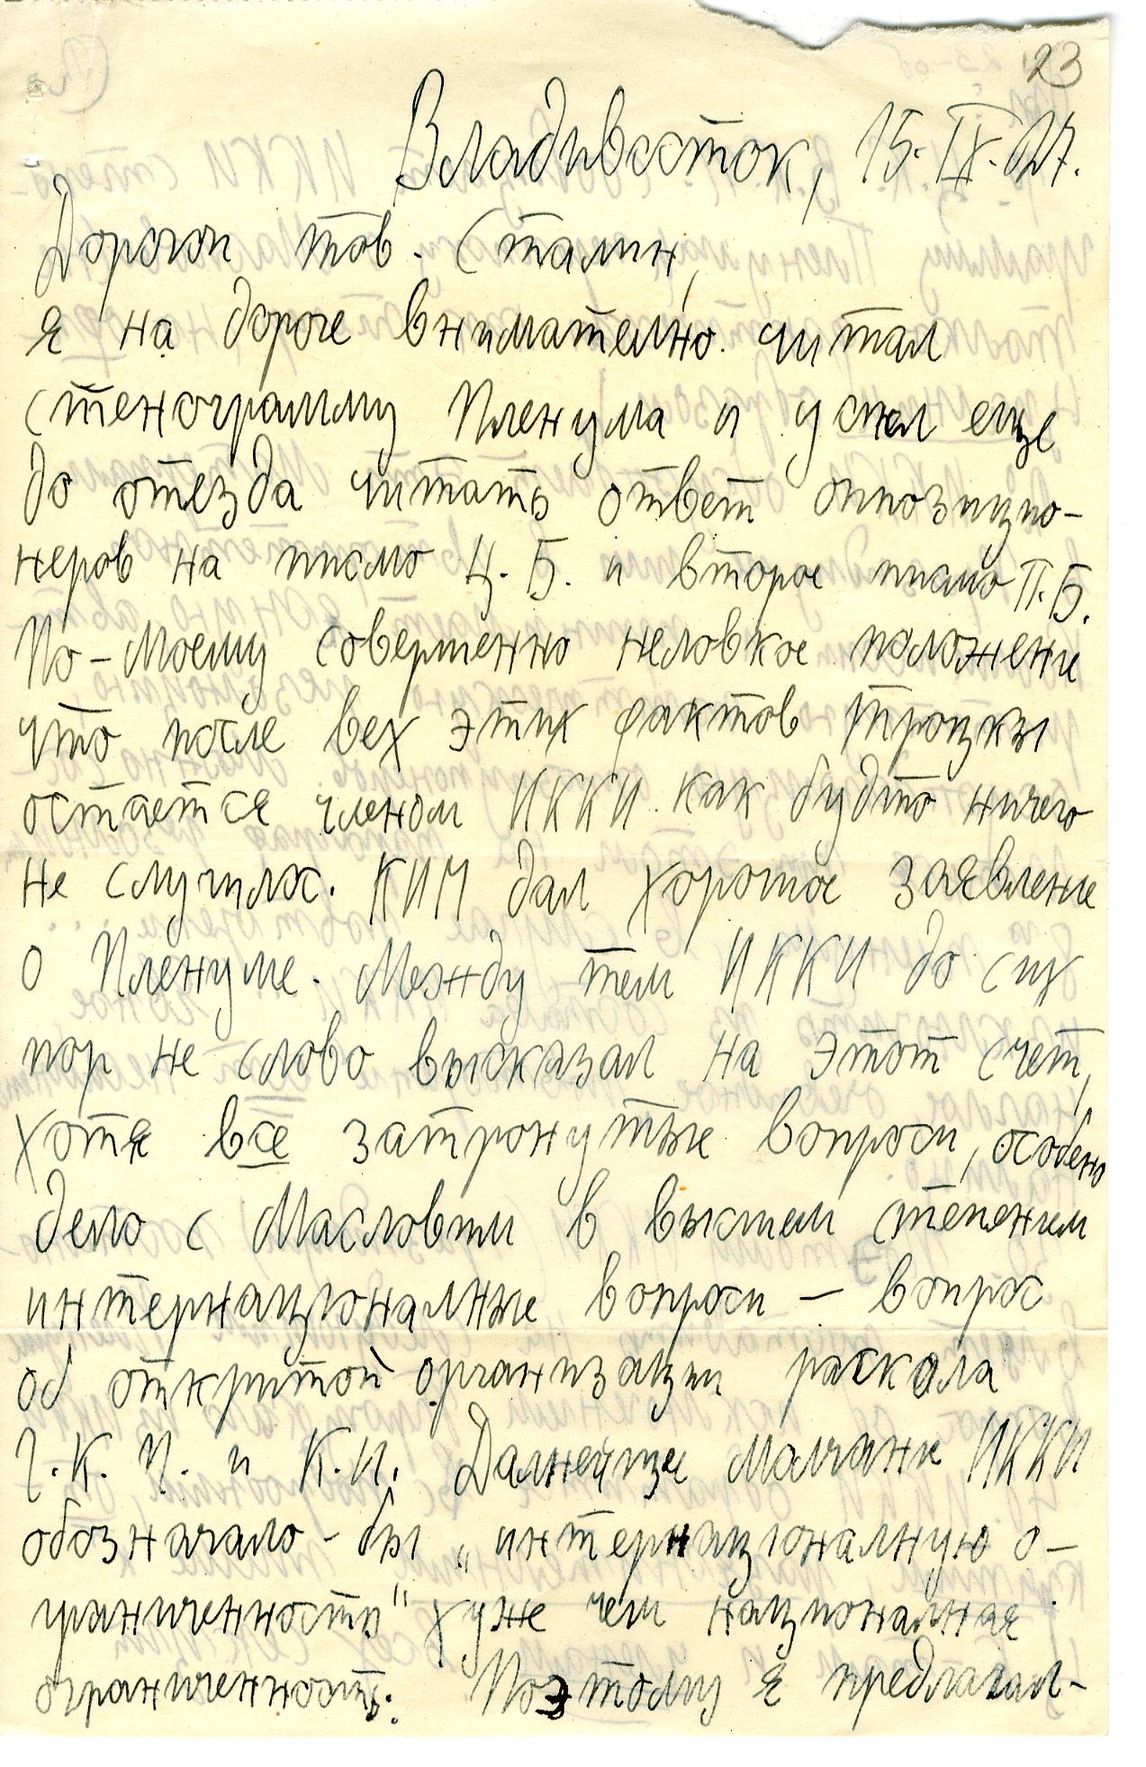 23
Владивосток, 15.IX.27.
Дорогои тов. Сталин,
я на дороге внимателно читал
стенограмму Пленума и успел еще
до отезда читать ответ оппозицио-
неров на писмо Ц.Б. и второе писмо П.Б.
По-моему совершенно неловкое положение
что после вех этих фактов Троцкы
остается членом ИККИ как будто ничего
не случилос. КИМ дал хорошое заявление
о Пленуме. Между тем ИККИ до сих
пор не слово высказал на этот счет,
хотя все затронутые вопроси, особено
дело с Масловым в высшем степенем
интернационалные вопроси – вопрос
об открытой организации раскола
Г.К.П. и К.И. Далнейшее малчание ИККИ
обозначало-бы „интернационалную о-
граниченность" хуже чем национальная
ограниченность. Поэтому я предлагал-